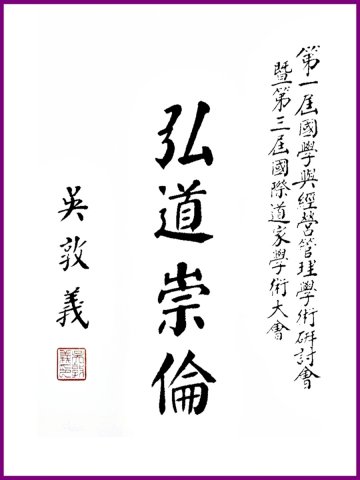 第一屆國學與經營管理學術研討會
暨第三屆國際道家學術大會
弘道崇倫
吳敦義